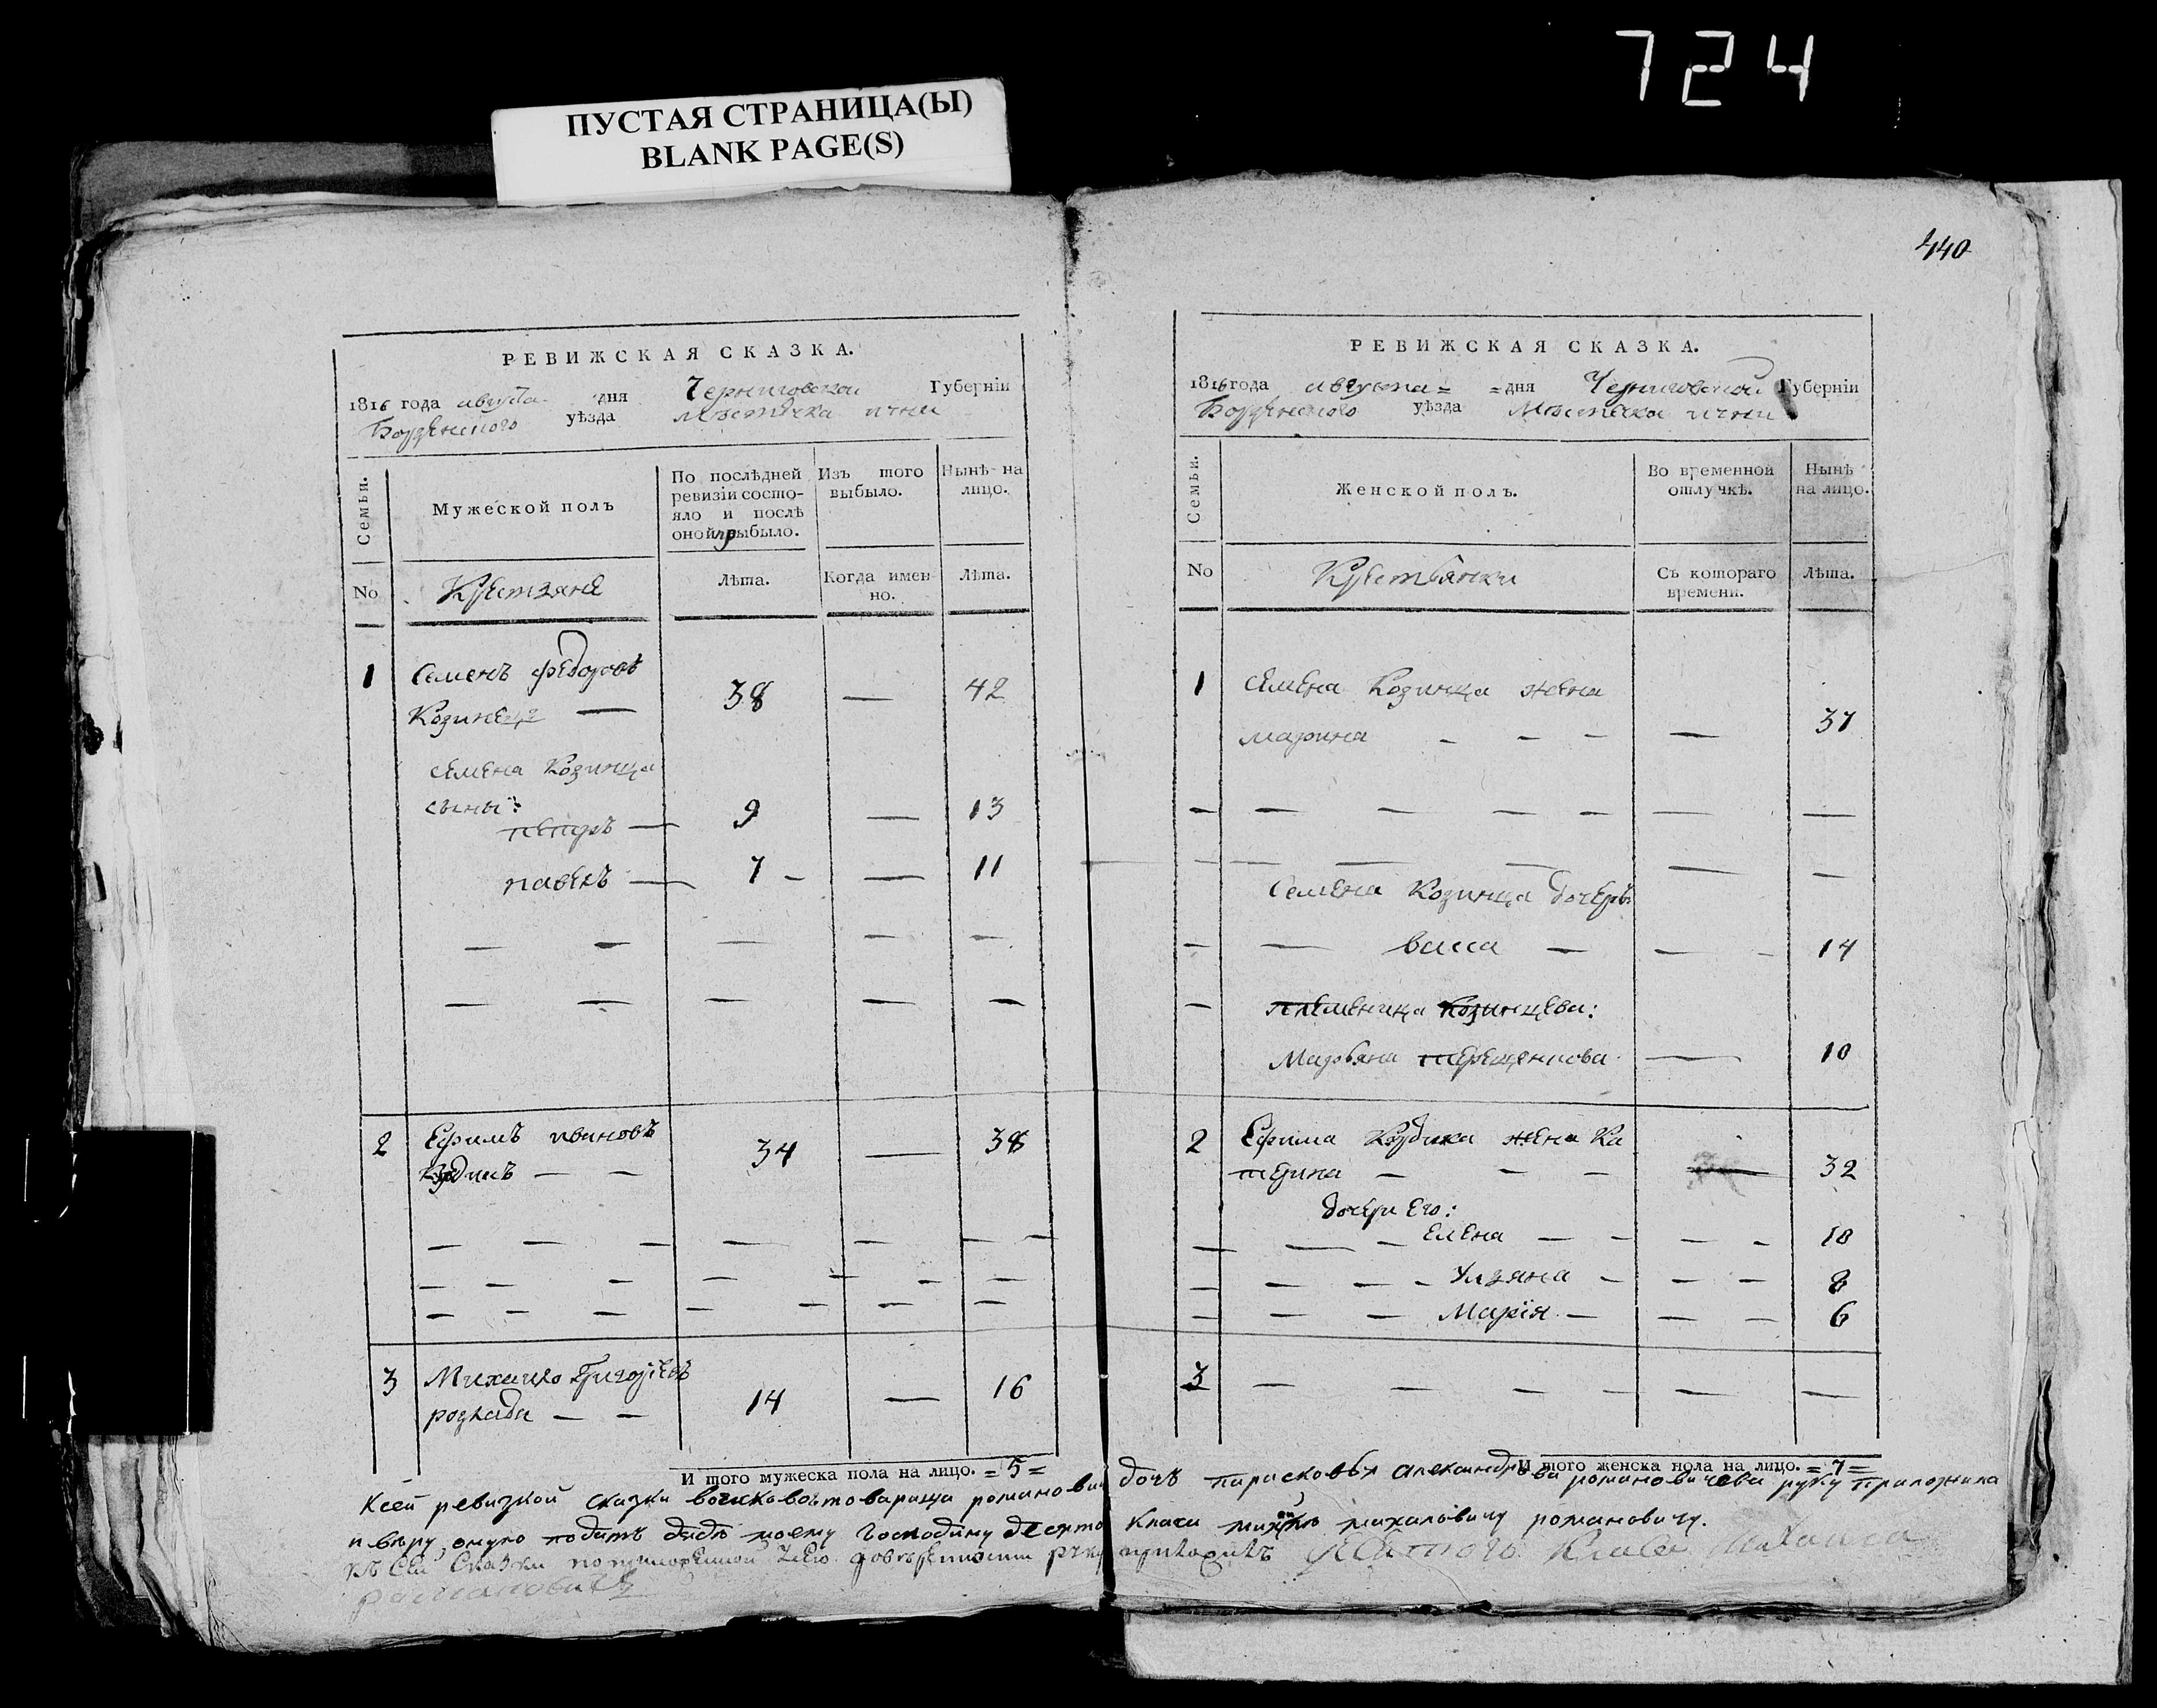 724
ПУСТАЯ СТРАНИЦА(Ы)
BLANK PAGE(S)
440
РЕВИЖСКАЯ СКАЗКА.
1816 года августа дня Черниговской Губерніи
Борзенского уѣзда Мѣстечка ични
Семьи.
Мужеской полъ
По послѣдней
ревизіи состо-
яло и послѣ
оной прибыло.
Изъ того
выбыло.
Нынѣ на
лицо.
No
Крестьяне
Лѣта.
Когда имен-
но.
Лѣта.
1 Семенъ федоровъ
Козинецъ — 38 — 42
семена Козинца
сыны:
петръ — 9 — 13
павелъ — 7 — — 11
2 Ефимъ ивановъ
34 — 38
3 Михайло Григорiевъ
розлада — — 14 — 16
И того мужеска пола на лицо. = 5 =
РЕВИЖСКАЯ СКАЗКА.
1816 года августа = = дня Черниговской Губерніи
Борзенского уѣзда Мѣстечка ични
Семьи.
Женской полъ.
Во временной
отлучкѣ.
Нынѣ
на лицо.
No
Крестьянки
Съ котораго
времени.
Лѣта.
1 семена Козинца жена
марина — — — — 37
Семена Козинца дочерь
— — васса — — — 14
— племеница Козинцева:
Марьяна терещенкова — 10
2 Ефима Кудика жена Ка
терина — — — — 32
дочери его:
— — — Елена — — — — 10
— — — — Ульяна — — — 8
— — — Марія — — — 6
3 — — — — — —
И того женска пола на лицо. = 7 =
Ксей ревизкой сказки войсковогтоварища романович дочъ парасковья александрова романовичева руку приложила
и вѣру оную подать дядѣ моему Господину десято класи михайлѣ михаловичу романовичу.
къ сей Сказки по доверенности руку приложилъ Класа Михайла
романовичъ